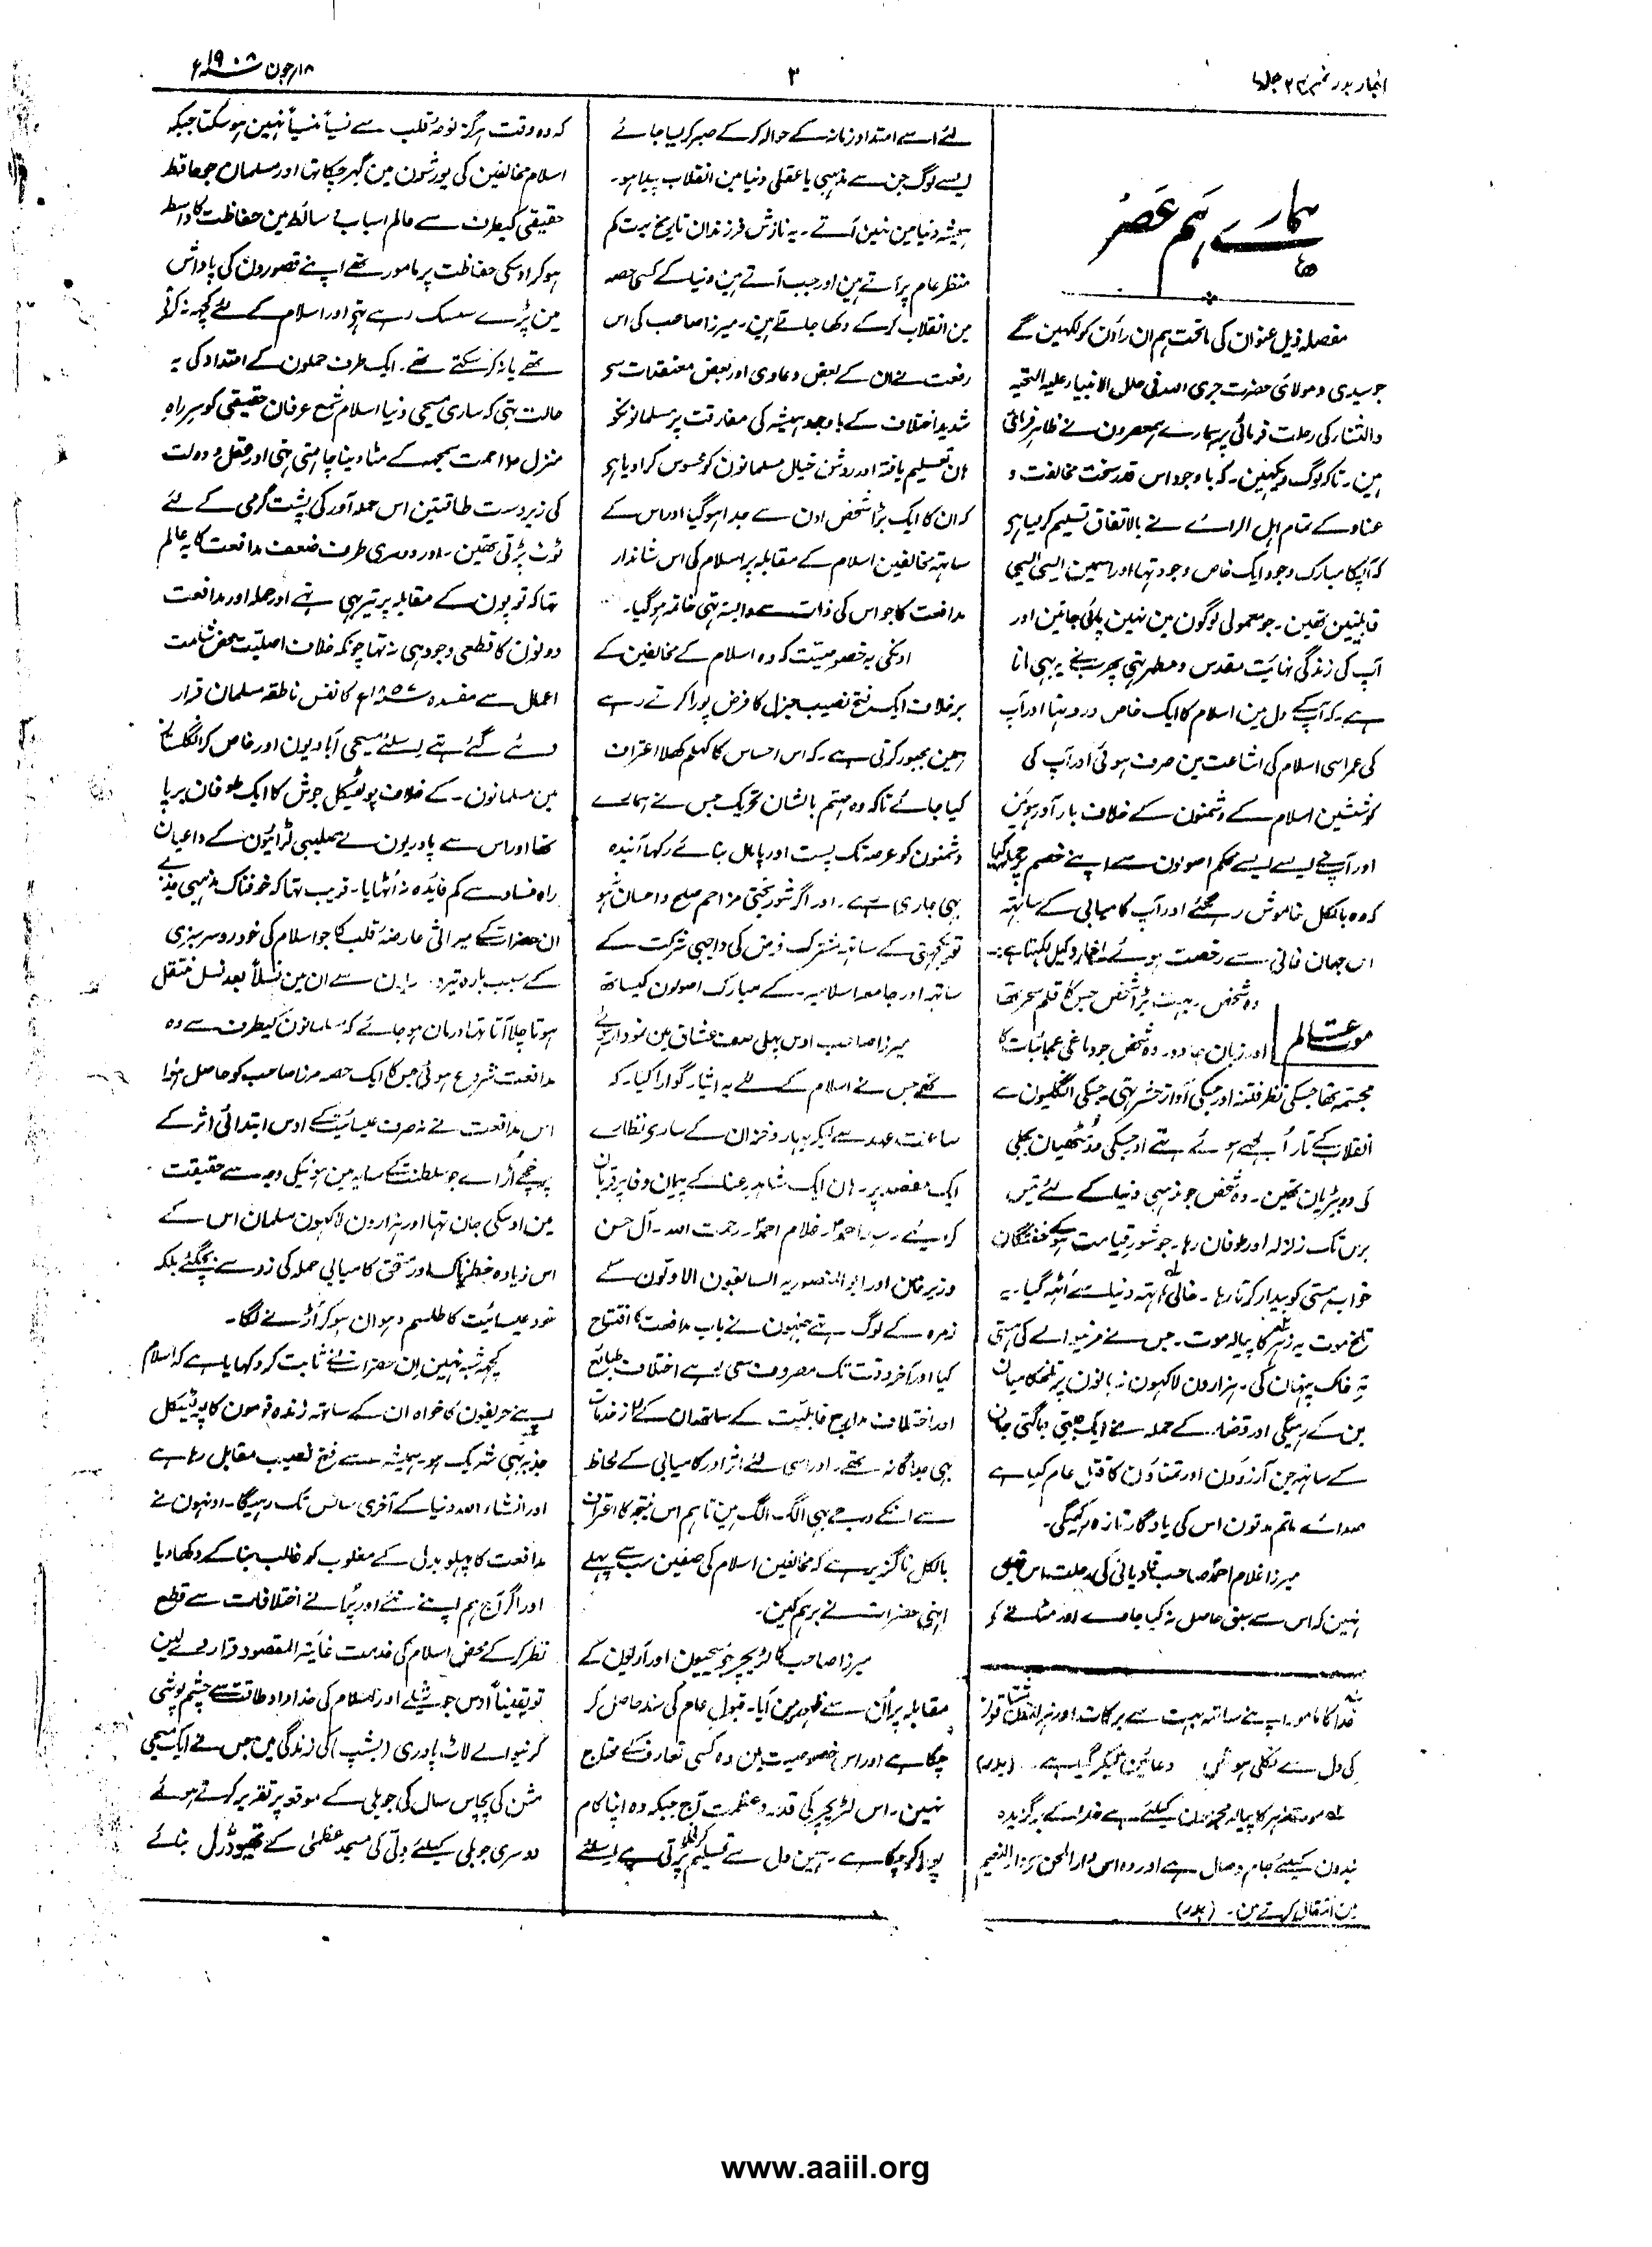 اخبار بدر نمبر ۲۴ جلد ۷
۳
۱۸ جون ۱۹۰۸ء
ہمارے ہم عصر
مفصلہ ذیل عنوان کی ماتحت ہم ان راؤن کو لکھین گے
جو سیدی و مولائی حضرت جری اللہ فی حلل الانبیاء علیہ التحیہ
والثناء کی رحلت فرمائی پر ہمارے ہمعصرون نے ظاہر فرمائی
ہین۔ تاکہ لوگ دیکھین۔ کہ باوجود اس قدر سخت مخالفت و
عناد کے تمام اہل الرائے نے بالاتفاق تسلیم کر لیا ہی
کہ آپکا مبارک وجود ایک خاص وجود تھا اور اسمین ایسی ایسی
قابلیتین تھین۔ جو معمولی لوگون مین نہین پائی جاتین اور
آپ کی زندگی نہایت مقدس و مطہر تھی پھر سبنے یہ بھی مانا
ہے۔ کہ آپ کے دل مین اسلام کا ایک خاص درد تھا اور آپ
کی عمر اسی اسلام کی اشاعت مین صرف ہوئی اور آپ کی
کوششین اسلام کے دشمنون کے خلاف بارآور ہوئین
اور آپنے ایسے ایسے محکم اصولون سے اپنے خصم پر حملہ کیا
کہ وہ بالکل خاموش رہ گئے اور آپ کامیابی کے ساتھ
اس جہان فانی سے رخصت ہوئے۔ اخبار وکیل لکھتا ہے:۔
موت عالم
وہ شخص۔ بہت بڑا شخص جس کا قلم سحر تھا
اور زبان جادو۔ وہ شخص جو دماغی عجائبات کا
مجسمہ تھا جسکی نظر فتنہ اور جسکی آواز حشر تھی۔ جسکی انگلیون سے
انقلاب کے تار اُلجھے ہوئے تھے اور جسکی دو مٹھیان بجلی
کی دو بیٹریان تھین۔ وہ شخص جو مذہبی دنیا کے لئے تیس
برس تک زلزلہ اور طوفان رہا۔ جو شور قیامت ہو کے خفتگان
خواب ہستی کو بیدار کرتا رہا۔ خالی ہاتھ دنیا سے اُٹھ گیا۔ یہ
تلخ موت یہ زہر کا پیالہ موت۔ جس نے مرنیوالے کی ہستی
تہ خاک پنہان کی۔ ہزارون لاکھون زبانون پر تلخ کامیان
بن کے رہیگی اور قضا کے حملہ نے ایک جیتی جاگتی جان
کے ساتھ جن آرزوؤن اور تمناؤن کا قتل عام کیا ہے
صدائے ماتم مدتون اس کی یادگار تازہ رکھیگی۔
میرزا غلام احمد صاحب قادیانی کی رحلت اس قابل
نہین کہ اس سے سبق حاصل نہ کیا جاوے اور مٹانے کو
خدا کا مامور اپنے ساتھ بہت سے برکات اور
کی دل سے نکلی ہوئی دعائین لیکر گیا ہے۔ (بدر)
لہ موت زہر کا پیالہ کیلئے ہے خدا کے برگزیدہ
بندون کیلئے جام وصال ہے اور وہ اس دار المحن سے دار النعیم
مین انتقال کرتے ہین۔ (بدر)
لئے اسے امتداد زمانہ کے حوالہ کر کے صبر کر لیا جائے
ایسے لوگ جن سے مذہبی یا عقلی دنیا مین انقلاب پیدا ہو۔
ہمیشہ دنیا مین نہین آتے۔ یہ نازش فرزندان تاریخ بہت کم
منظر عام پر آتے ہین اور جب آتے ہین دنیا کے کسی حصہ
مین انقلاب کر کے دکھا جاتے ہین۔ میرزا صاحب کی اس
رفعت نے ان کے بعض دعاوی اور بعض معتقدات سے
شدید اختلاف کے باوجود ہمیشہ کی مفارقت پر مسلمانونکو
ہان تعلیم یافتہ اور روشن خیال مسلمانون کو محسوس کرا دیا ہی
کہ ان کا ایک بڑا شخص اون سے جدا ہو گیا اور اس کے
ساتھ مخالفین اسلام کے مقابلہ پر اسلام کی اس شاندار
مدافعت کا جو اس کی ذات سے وابستہ تھی خاتمہ ہو گیا۔
اونکی یہ خصوصیت کہ وہ اسلام کے مخالفین کے
برخلاف ایک فتح نصیب جرنل کا فرض پورا کرتے رہے
ہمین مجبور کرتی ہے۔ کہ اس احساس کا کھلم کھلا اعتراف
کیا جائے تاکہ وہ مہتم بالشان تحریک جس نے ہمارے
دشمنون کو عرصہ تک پست اور پامال بنائے رکھا آیندہ
بھی جاری رہے۔ اور اگر شور بختی مزاحم صلح و احسان نہ ہو
تو یکجہتی کے ساتھ مشترک فرض کی واجبی شرکت کے
ساتھ اور جامعہ اسلامیہ کے مبارک اصولون کیساتھ
میرزا صاحب اوس پہلی صف عشاق مین نمودار ہوئے
تھے جس نے اسلام کے لئے یہ ایثار گوارا کیا۔ کہ
ساعت مہد سے لیکر بہار و خزان کے سارے نظارے
ایک مقصد پر۔ ہان ایک شاہد رعنا کے پیمان وفا پر قربان
کر دیئے۔ سید احمد۔ غلام احمد۔ رحمت اللہ۔ آل حسن
وزیر خان اور ابو المنصور یہ السابقون الاولون کے
زمرہ کے لوگ تھے جنہون نے باب مدافعت کا افتتاح
کیا اور آخر وقت تک مصروف سعی رہے اختلاف طبائع
اور اختلاف مدارج قابلیت کے ساتھ ان کے خدمات
بھی جداگانہ تھے۔ اور اسی لئے اثر اور کامیابی کے لحاظ
سے انکے درجے بھی الگ الگ ہین تاہم اس نتیجہ کا اعتراف
بالکل ناگزیر ہے کہ مخالفین اسلام کی صفین سب سے پہلے
انہی حضرات نے برہم کین۔
میرزا صاحب کا لٹریچر جو مسیحیون اور آریون کے
مقابلہ پر اُن سے ظہور مین آیا۔ قبول عام کی سند حاصل کر
چکا ہے اور اس خصوصیت مین وہ کسی تعارف کے محتاج
نہین۔ اس لٹریچر کی قدر و عظمت آج جبکہ وہ اپنا کام
پورا کر چکا ہے۔ ہمین دل سے تسلیم کرنی پڑتی ہے اسلئے
کہ وہ وقت ہرگز لوح قلب سے نسیاً منسیاً نہین ہو سکتا جبکہ
اسلام مخالفین کی یورشون مین گھر چکا تھا اور مسلمان جو حافظ
حقیقی کیطرف سے عالم اسباب و سائط مین حفاظت کا واسطہ
ہو کر اوسکی حفاظت پر مامور تھے اپنے قصورون کی پاداش
مین پڑے سسک رہے تھے اور اسلام کے لئے کچھ نہ کرتے
تھے یا نہ کر سکتے تھے۔ ایک طرف حملون کے امتداد کی یہ
حالت تھی کہ ساری مسیحی دنیا اسلام کی شمع عرفان حقیقی کو سر راہ
منزل مزاحمت سمجھ کے مٹا دینا چاہتی تھی اور عقل و دولت
کی زبردست طاقتین اس حملہ آور کی پشت گرمی کے لئے
ٹوٹ پڑتی تھین۔ اور دوسری طرف ضعف مدافعت کا یہ عالم
تھا کہ توپون کے مقابلہ پر تیر بھی نہ تھے اور حملہ اور مدافعت
دونون کا قطعی وجود ہی نہ تھا چونکہ خلاف اصلیت محض شامت
اعمال سے مفسدہ ۱۸۵۷ء کا نفس ناطقہ مسلمان قرار
دئے گئے تھے اسلئے مسیحی آبادیون اور خاص کر انگلستان
مین مسلمانون۔ کے خلاف پولٹیکل جوش کا ایک طوفان برپا
تھا اور اس سے پادریون نے صلیبی لڑائیون کے داعیان
راہ فساد سے کم فایدہ نہ اُٹھایا۔ قریب تھا کہ خوفناک مذہبی جذبے
ان حضرات کے میراثی عارضہ قلب کا جو اسلام کی خودرو سرسبزی
کے سبب بارہ تیرہ صدیون سے ان مین نسلاً بعد نسل منتقل
ہوتا چلا آتا تھا درمان ہو جائے کہ مسلمانون کیطرف سے وہ
مدافعت شروع ہوئی جس کا ایک حصہ مرزا صاحب کو حاصل ہوا
اس مدافعت نے نہ صرف عیسائیت کے اوس ابتدائی اثر کے
پرخچے اُڑائے جو سلطنت کے سایہ مین ہونیکی وجہ سے حقیقت
مین اوسکی جان تھا اور ہزارون لاکھون مسلمان اس کے
اس زیادہ خطرناک اور مستحق کامیابی حملہ کی زد سے بچ گئے بلکہ
خود عیسائیت کا طلسم دہوان ہو کر اُڑنے لگا۔
کچھ شبہ نہین ان حضرات نے ثابت کر دکھایا ہے کہ اسلام
اپنے حریفون کا خواہ ان کے ساتھ زندہ قومون کا پولٹیکل
جذبہ بھی شریک ہو۔ ہمیشہ سے فتح نصیب مقابل رہا ہے
اور انشاء اللہ دنیا کے آخری سانس تک رہیگا۔ اونہون نے
مدافعت کا پہلو بدل کے مغلوب کو غالب بنا کے دکھا دیا
اور اگر آج ہم اپنے نئے اور پُرانے اختلافات سے قطع
نظر کر کے محض اسلام کی خدمت غایۃ المقصود قرار دے لین
تو یقیناً اوس جوشیلے اور اسلام کی خداداد طاقت سے چشم پوشی
کرنیوالے لاٹ پادری (بشپ) کی زندگی مین جس نے ایک مسیحی
مشن کی پچاس سال کی جوبلی کے موقعہ پر تقریر کرتے ہوئے
دوسری جوبلی کیلئے دلّی کی مسجد عظمیٰ کے کتھیڈرل بنائے
www.aaiil.org